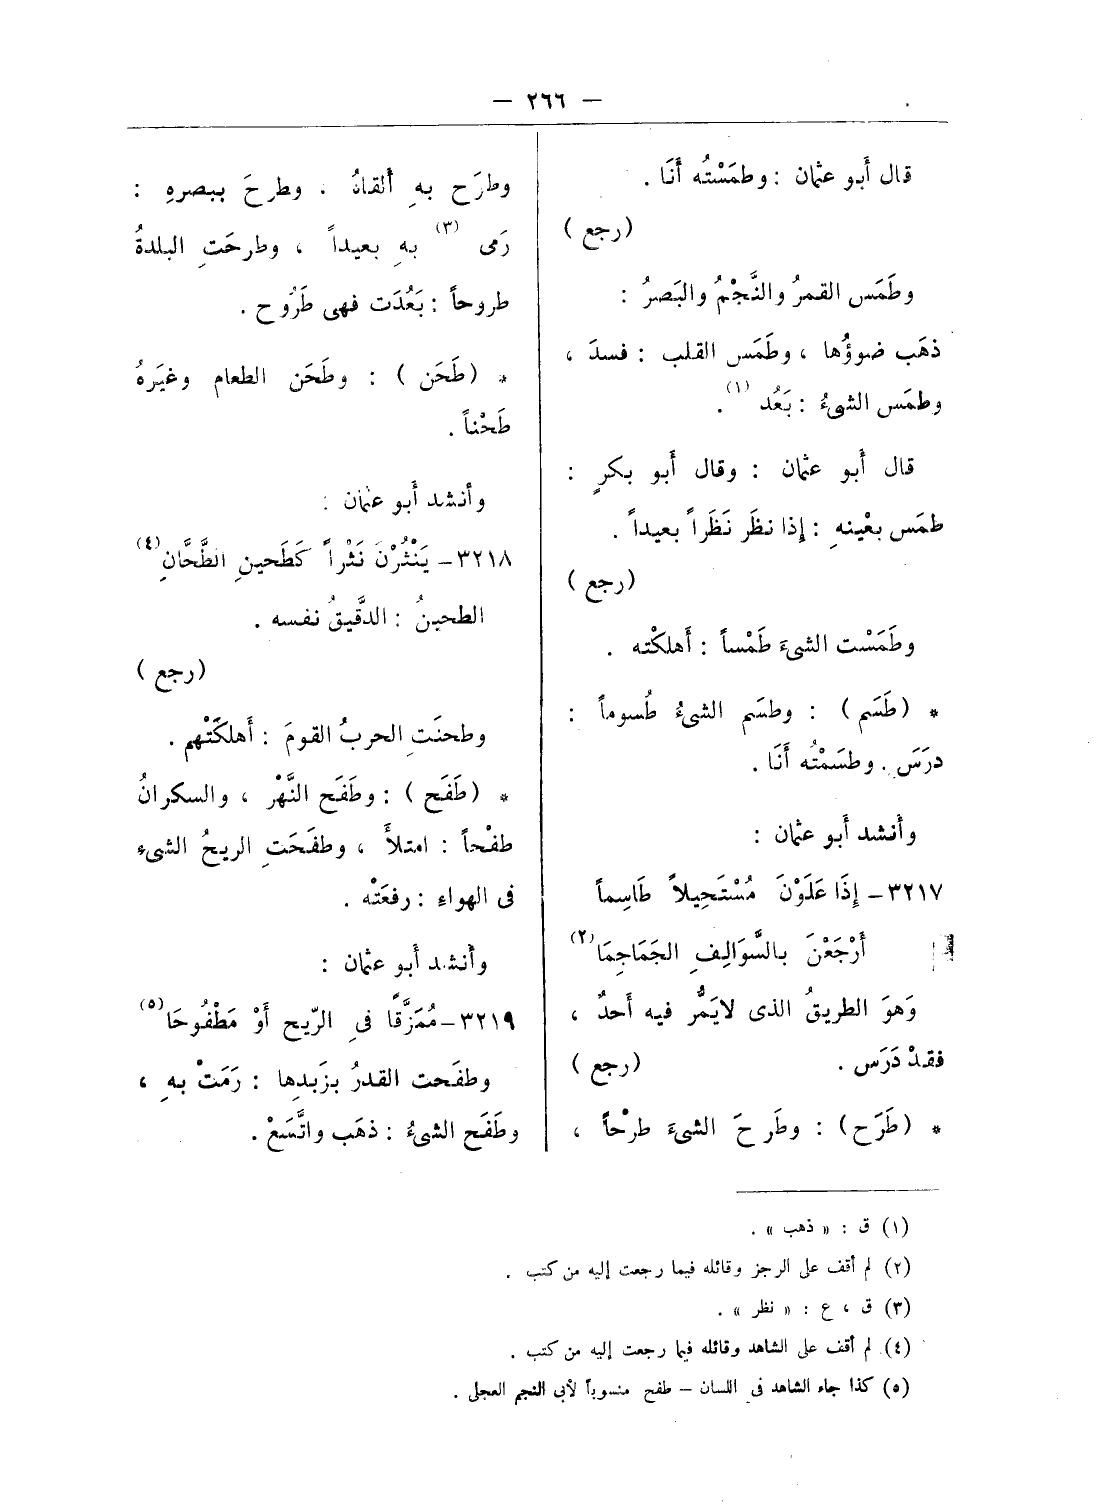 — ٢٦٦ —
قال أَبو عثمان : وطمَسْتُه أَنَا .
( رجع )
وطَمَس القمرُ والنَّجْمُ والبَصرُ :
ذهَب ضوؤُها ، وطَمَس القلب : فسدَ ،
وطمَس الشىءُ : بَعُد (١) .
قال أَبو عثمان : وقال أَبو بكرٍ :
طمَس بعْينهِ : إِذا نظَر نَظَراً بعيداً .
( رجع )
وطَمَسْت الشىءَ طَمْساً : أَهلكْته .
* ( طَسَم ) : وطسَم الشىءُ طُسوماً :
درَسَ . وطسَمْتُه أَنَا .
وأَنشد أَبو عثمان :
٣٢١٧ – إِذَا عَلَوْنَ مُسْتَحِيلاً طَاسِماً
أَرْجَعْنَ بالسَّوَالِفِ الجَمَاجِمَا (٢)
وَهوَ الطريقُ الذى لايَمُر فيه أَحدٌ ،
فقدْ دَرَس . ( رجع )
* ( طَرَح ) : وطَرحَ الشىءَ طرْحاً ،
وطرَح بهِ أَلقاهُ . وطرحَ ببصرهِ :
رَمى (٣) بهِ بعيداً ، وطرحَتِ البلدةُ
طروحاً : بَعُدَت فهى طَرُوح .
* ( طَحَن ) : وطَحَن الطعام وغيَرهُ
طَحْناً .
وأنشد أَبو عثمان :
٣٢١٨ – يَنْثُرْنَ نَثْراً كَطَحينِ الطَّحَّانِ (٤)
الطحينُ : الدَّقيقُ نفسه .
( رجع )
وطحنَتِ الحربُ القومَ : أَهلكَتْهم .
* ( طَفَح ) : وطَفَح النَّهْر ، والسكرانُ
طفْحاً : امتلأَ ، وطفَحَتِ الريحُ الشىءِ
فى الهواءِ : رفعَتْه .
وأَنشد أَبو عثمان :
٣٢١٩ – مُمَزَّقًا فىِ الرّيح أَوْ مَطْفُوحَا (٥)
وطفَحت القدرُ بزَبدِها : رَمَتْ بهِ ،
وطَفَح الشىءُ : ذهَب واتَّسَعْ .
(١) ق : « ذهب » .
(٢) لم أقف على الرجز وقائله فيما رجعت إليه من كتب .
(٣) ق ، ع : « نظر » .
(٤) لم أقف على الشاهد وقائله فيما رجعت إليه من كتب .
(٥) كذا جاء الشاهد فى اللسان – طفح منسوباً لأبى النجم العجلى .